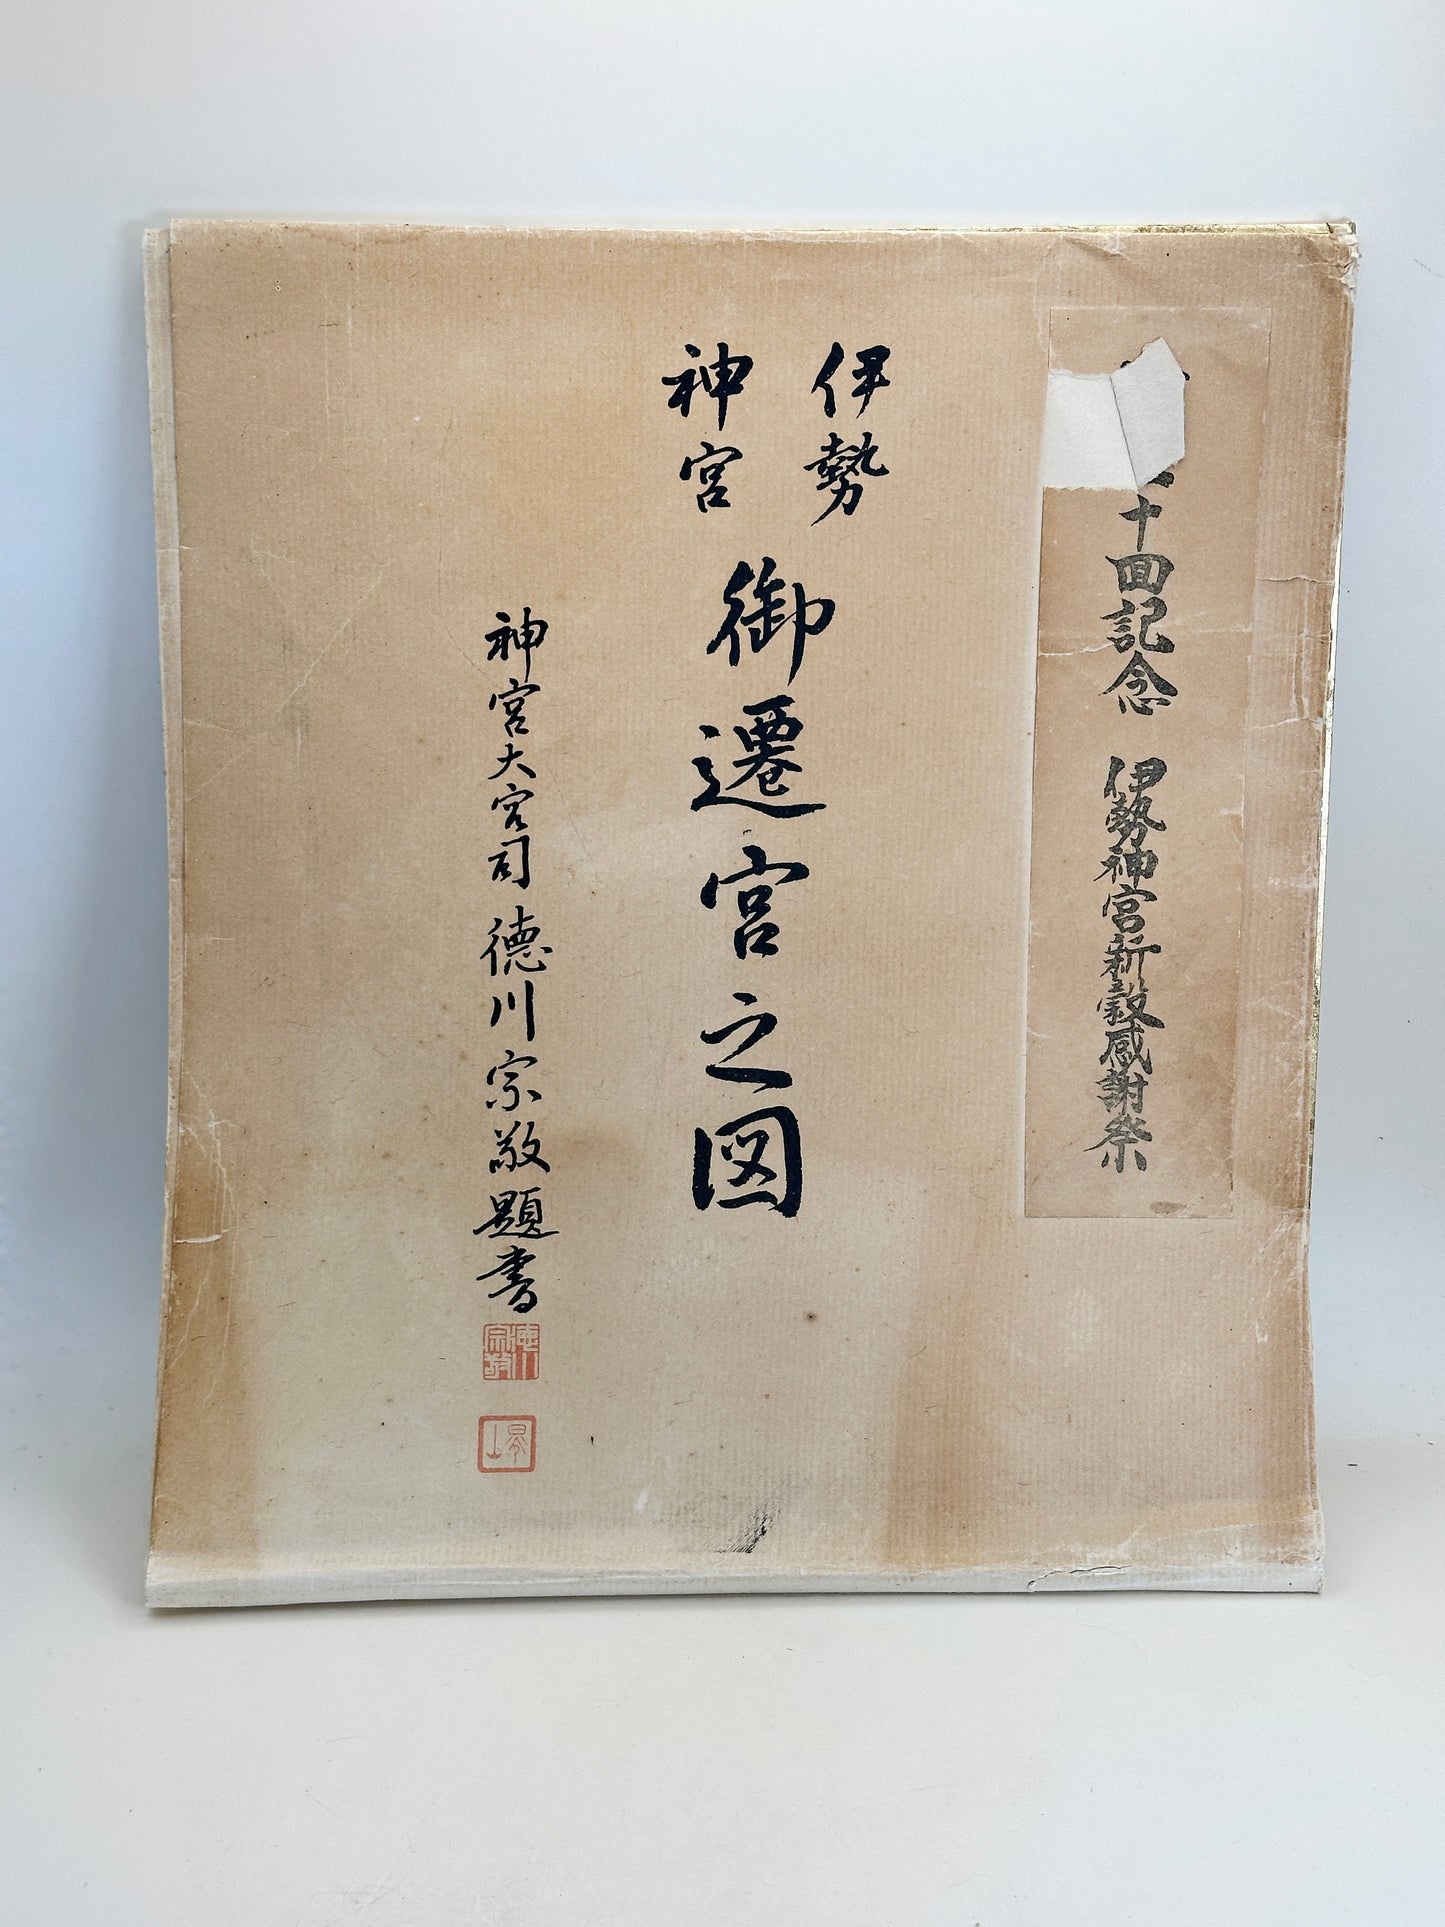 十回記念 伊勢神宮新穀感謝祭
伊勢
神宮
御遷宮之図
神宮大宮司 徳川宗敬題書
徳川宗敬